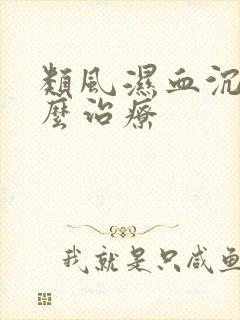 類風濕血沉
麼治療
我就是只咸鱼